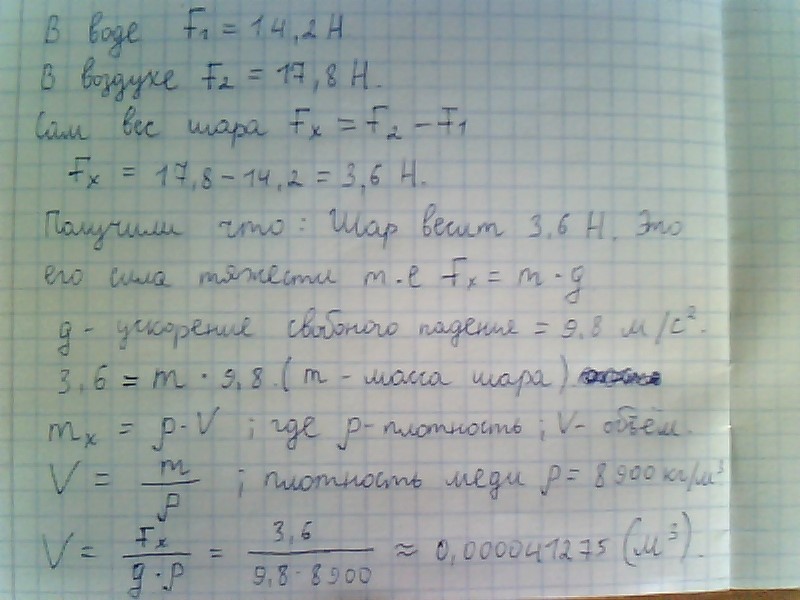 В воде F₁ = 14,2 Н
В воздухе F₂ = 17,8 Н.
Сам вес шара Fₓ = F₂ - F₁
Fₓ = 17,8 - 14,2 = 3,6 Н.
Получили что: Шар весит 3,6 Н. Это
его сила тяжести т.е Fₓ = m · g
g - ускорение свобоного падения = 9,8 м/с².
3,6 = m · 9,8. (m - масса шара)
mₓ = ρ · V ; где ρ - плотность ; V - объём.
V = m/ρ ; плотность меди ρ = 8900 кг/м³
V = Fₓ/(g · ρ) = 3,6/(9,8 · 8900) ≈ 0,000041275 (м³).